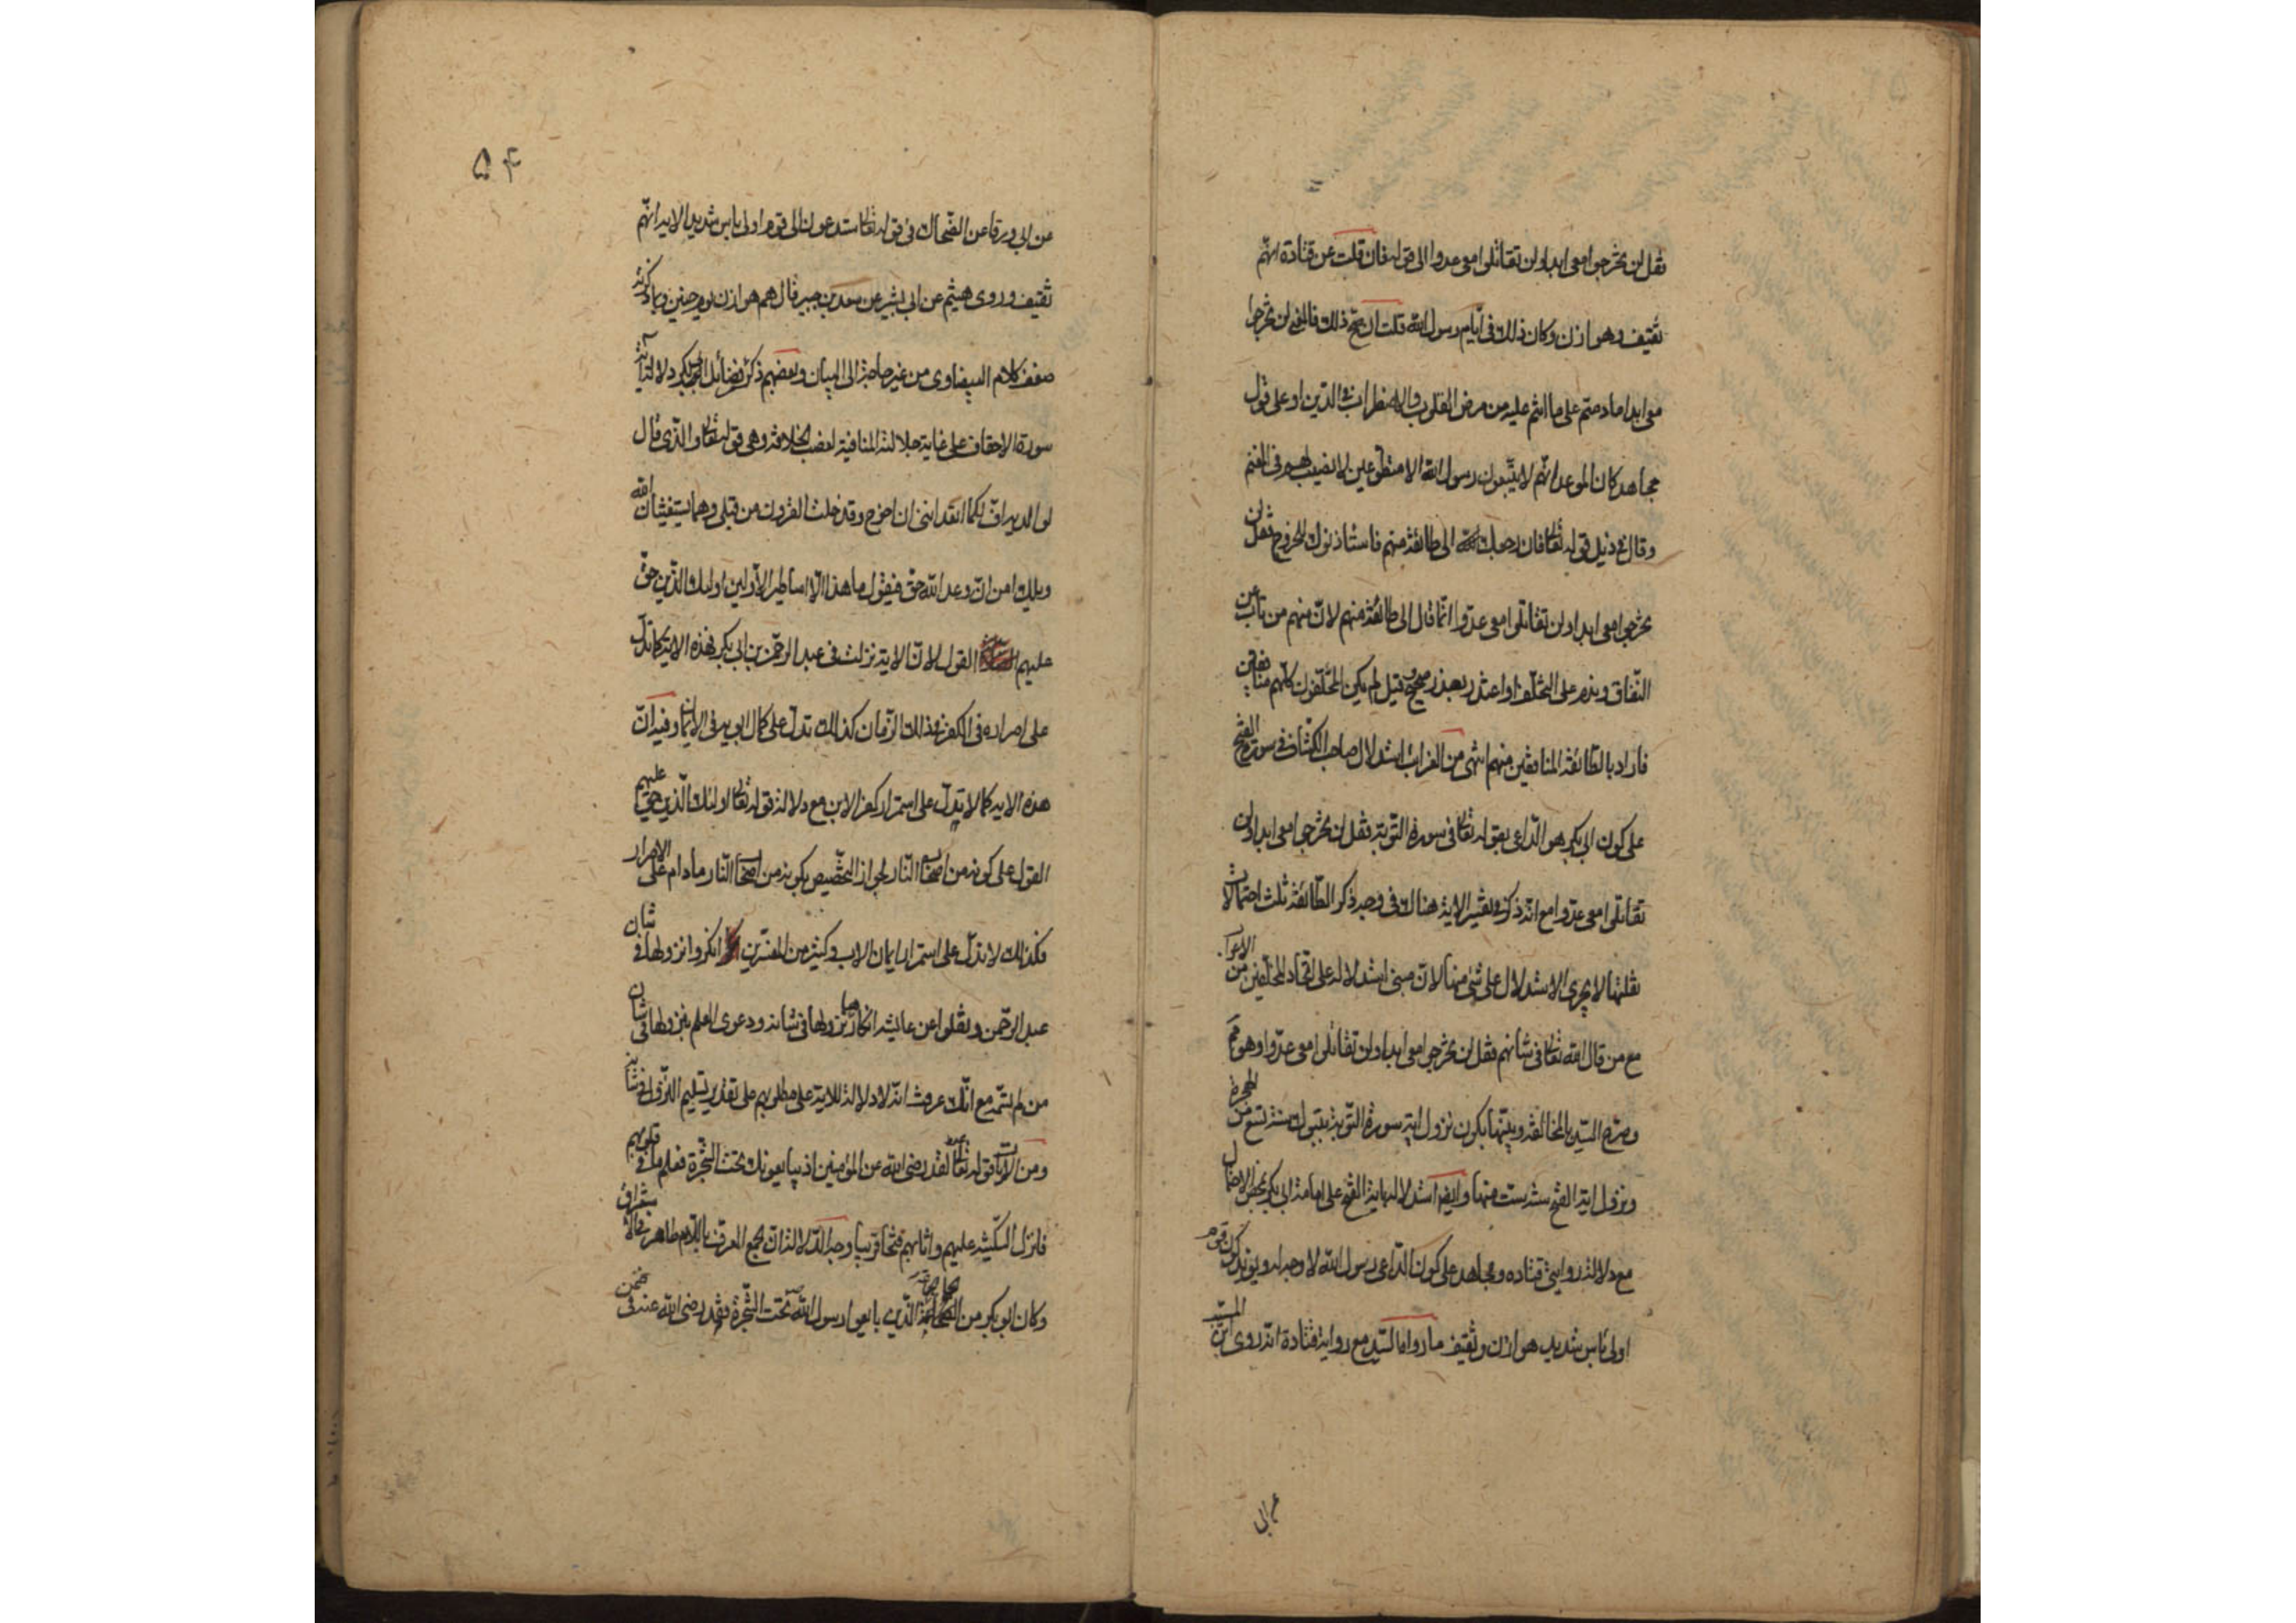 فقل لن تخرجوا معي ابدا ولن تقاتلوا معي عدوا الى قوله فان قلت عن قتادة انهم
ثقيف وهوازن وكان ذلك في ايام رسول الله قلت ان صح ذلك فالمعنى لن تخرجوا
معي ابدا ما دمتم على ما انتم عليه من مرض القلوب والاضطراب في الدين او على قول
مجاهد كان الموعد انهم لا يتبعون رسول الله الا متطوعين لا نصيب لهم في المغنم
وقال في ذيل قوله تعالى فان رجعك الله الى طائفة منهم فاستأذنوك للخروج فقل لن
تخرجوا معي ابدا ولن تقاتلوا معي عدوا انما قال الى طائفة منهم لان منهم من تاب عن
النفاق وندم على التخلف او اعتذر بعذر صحيح وقيل لم يكن المخلفون كلهم منافقين
فاراد بالطائفة المنافقين منهم انتهى من الغرائب استدلال صاحب الكشاف في سورة الفتح
على كون ابي بكر هو الداعي بقوله تعالى في سورة التوبة فقل لن تخرجوا معي ابدا ولن
تقاتلوا معي عدوا مع انه ذكر في تفسير الاية هناك في وجه ذكر الطائفة ثلث احتمالات
نقلتها لا يجري الاستدلال على شئ منها لان مبنى استدلاله على اتحاد المخلفين من الاعراب
مع من قال الله تعالى في شانهم فقل لن تخرجوا معي ابدا ولن تقاتلوا معي عدوا وهو
وصرح السيد بالمخالفة وبينها بكون نزول اية سورة التوبة بتبوك سنة تسع من الهجرة
ونزول اية الفتح سنة ست منها وايضا استدلاله باية الفتح على امامة ابي بكر بمحض الاحتمال
مع دلالة روايتي قتاده ومجاهد على كون الداعي رسول الله لا وجه له ويؤيد كون قوم
اولى باس شديد هوازن وثقيف ما رواه السيد مع رواية قتادة انه روى ابن المسيب
عن ابي
۵۴
عن ابي ورقا عن الضحاك في قوله تعالى ستدعون الى قوم اولى باس شديد الاية انهم
ثقيف وروى هيثم عن ابي بشير عن سعد بن جبير قال هم هوازن يوم حنين وبما ذكرته
ضعف كلام البيضاوي من غير حاجة الى البيان وبعضهم ذكر في فضائل ابي بكر دلالة اية
سورة الاحقاف على غاية جلالته المنافية لغصب الخلافة وهي قوله تعالى والذي قال
لوالديه اف لكما اتعدانني ان اخرج وقد خلت القرون من قبلي وهما يستغيثان الله
ويلك امن ان وعد الله حق فيقول ما هذا الا اساطير الاولين اولئك الذين حق
عليهم القول لان الاية نزلت في عبد الرحمن بن ابي بكر فهذه الاية كما تدل
على اصراره في الكفر في ذلك الزمان كذلك تدل على كمال ابويه في الايمان وفيه ان
هذه الاية كما لا تدل على استمرار كفر الابن مع دلالة قوله تعالى اولئك الذين حق عليهم
القول على كونه من اصحاب النار لجواز التخصيص بكونه من اصحاب النار ما دام على الاصرار
فكذلك لا تدل على استمرار ايمان الاب وكثير من المفسرين انكروا نزولها في شان
عبد الرحمن ونقلوا عن عايشه انكار نزولها في شانه ودعوى العلم بنزولها في شان
من لم تسمه مع انك عرفت انه لا دلالة للاية على مطلوبهم على تقدير تسليم النزول في شانه
ومن الايات قوله تعالى لقد رضى الله عن المؤمنين اذ يبايعونك تحت الشجرة فعلم ما في قلوبهم
فانزل السكينة عليهم واثابهم فتحا قريبا وجه الدلالة ان الجمع المعرف باللام ظاهر في الاستغراق
وكان ابو بكر من الصحابة الذين بايعوا رسول الله تحت الشجرة فقد رضى الله عنه في ضمن